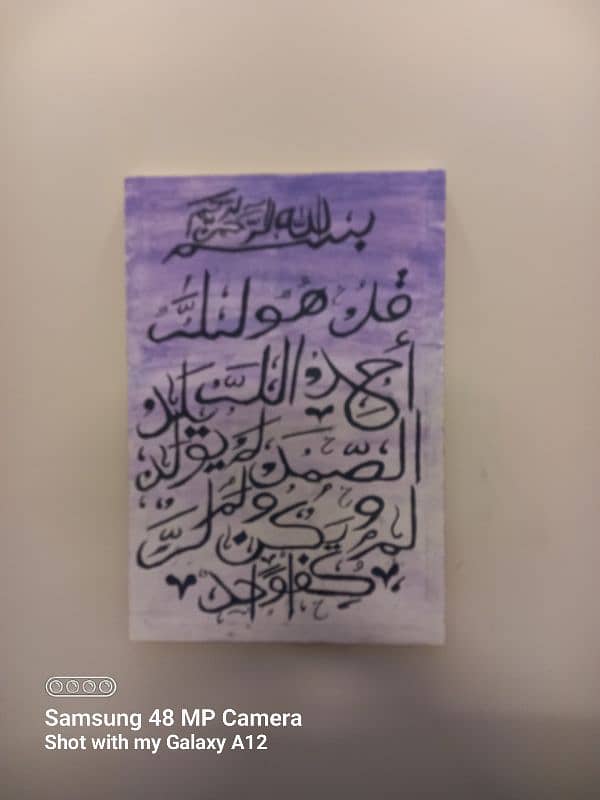 بسم الله الرحمن الرحيم
قُل هُوَ اللهُ
أَحَد اللهُ يلد
الصَّمَد لم يولد
لم و يكن ولم لهُ
كفوًا احد
Samsung 48 MP Camera
Shot with my Galaxy A12